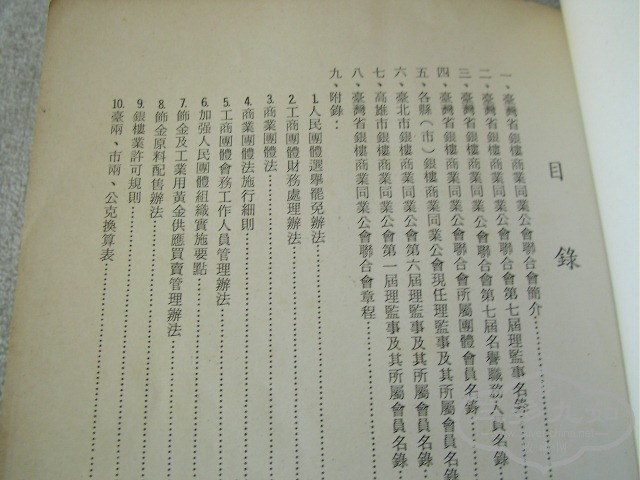 目錄
一、臺灣省銀樓商業同業公會聯合會簡介
二、臺灣省銀樓商業同業公會聯合會第七屆理監事名錄
三、臺灣省銀樓商業同業公會聯合會第七屆名譽職務人員名錄
四、臺灣省銀樓商業同業公會聯合會所屬團體會員名錄
五、各縣（市）銀樓商業同業公會現任理監事及其所屬會員名錄
六、臺北市銀樓商業同業公會第六屆理監事及其所屬會員名錄
七、高雄市銀樓商業同業公會第一屆理監事及其所屬會員名錄
八、臺灣省銀樓商業同業公會聯合會章程
九、附錄：
1.人民團體選舉罷免辦法
2.工商團體財務處理辦法
3.商業團體法
4.商業團體法施行細則
5.工商團體會務工作人員管理辦法
6.加強人民團體組織實施要點
7.飾金及工業用黃金供應買賣管理辦法
8.飾金原料配售辦法
9.銀樓業許可規則
10.臺兩、市兩、公克換算表